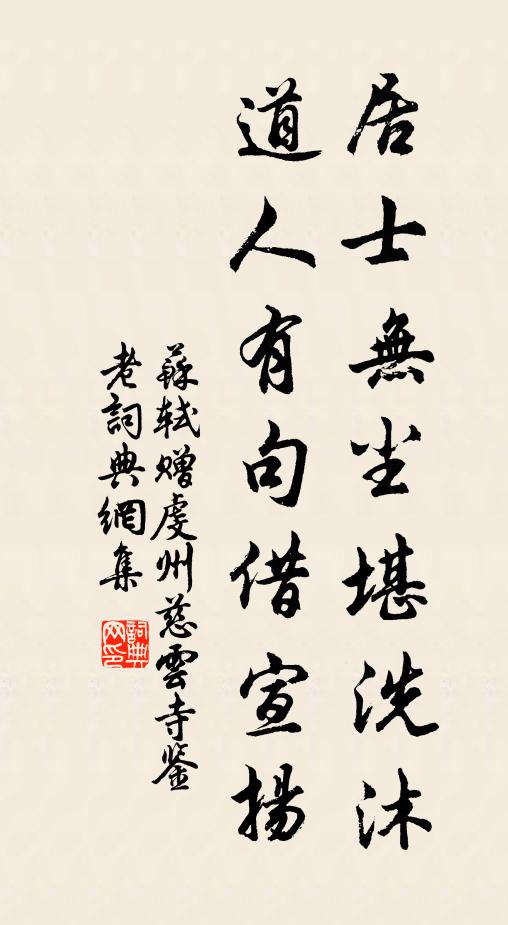 居士無尘堪洗沐
道人有句借宣揚
蘇轼赠虔州慈雲寺鉴
老詞典網集
詞典网印